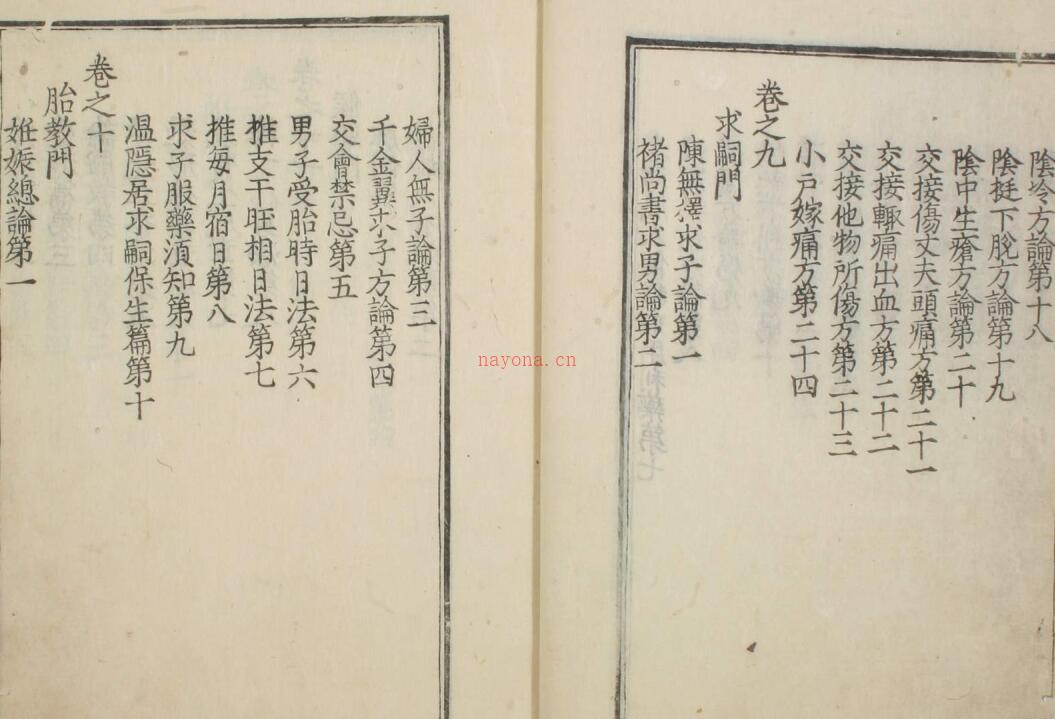 陰冷方論第十八
陰挺下脫方論第十九
陰中生瘡方論第二十
交接傷丈夫頭痛方第二十一
交接輙痛出血方第二十二
交接他物所傷方第二十三
小戶嫁痛方第二十四
卷之九
求嗣門
陳無擇求子論第一
褚尚書求男論第二
婦人無子論第三
千金翼求子方論第四
交會禁忌第五
男子受胎時日法第六
推支干旺相日法第七
推每月宿日第八
求子服藥須知第九
溫隱居求嗣保生篇第十
卷之十
胎教門
姙娠總論第一
nayona.cn